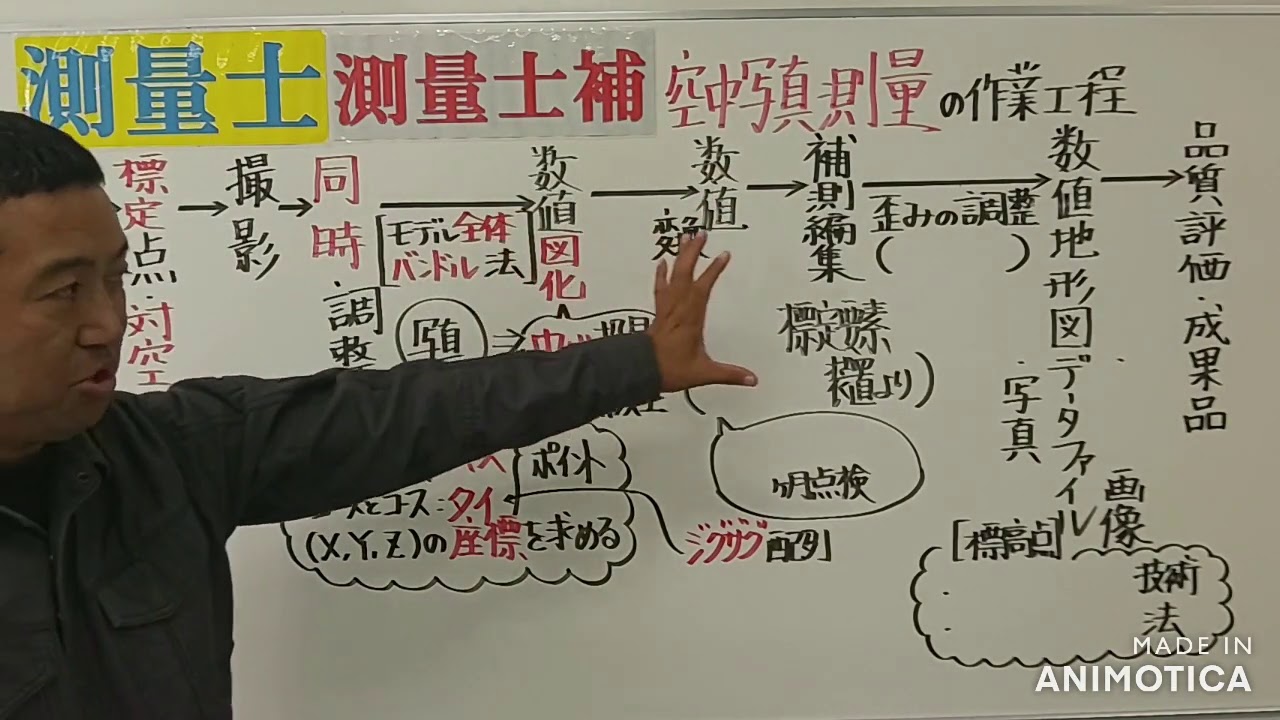 測量士 測量士補 空中写真測量の作業工程
標定点・対空
撮影
同時・調整
[モデル全体
バンドル法]
数値図化
数値
補測編集
歪みの調整
( )
数値地形図データファイル
・写真
画像
品質評価・成果品
写真
標定要素
より)
ヶ月点検
ポイント
コース:タイ
(X,Y,Z)の座標を求める
ジグザグ配列
[標高点]
技術
法
MADE IN
ANIMOTICA